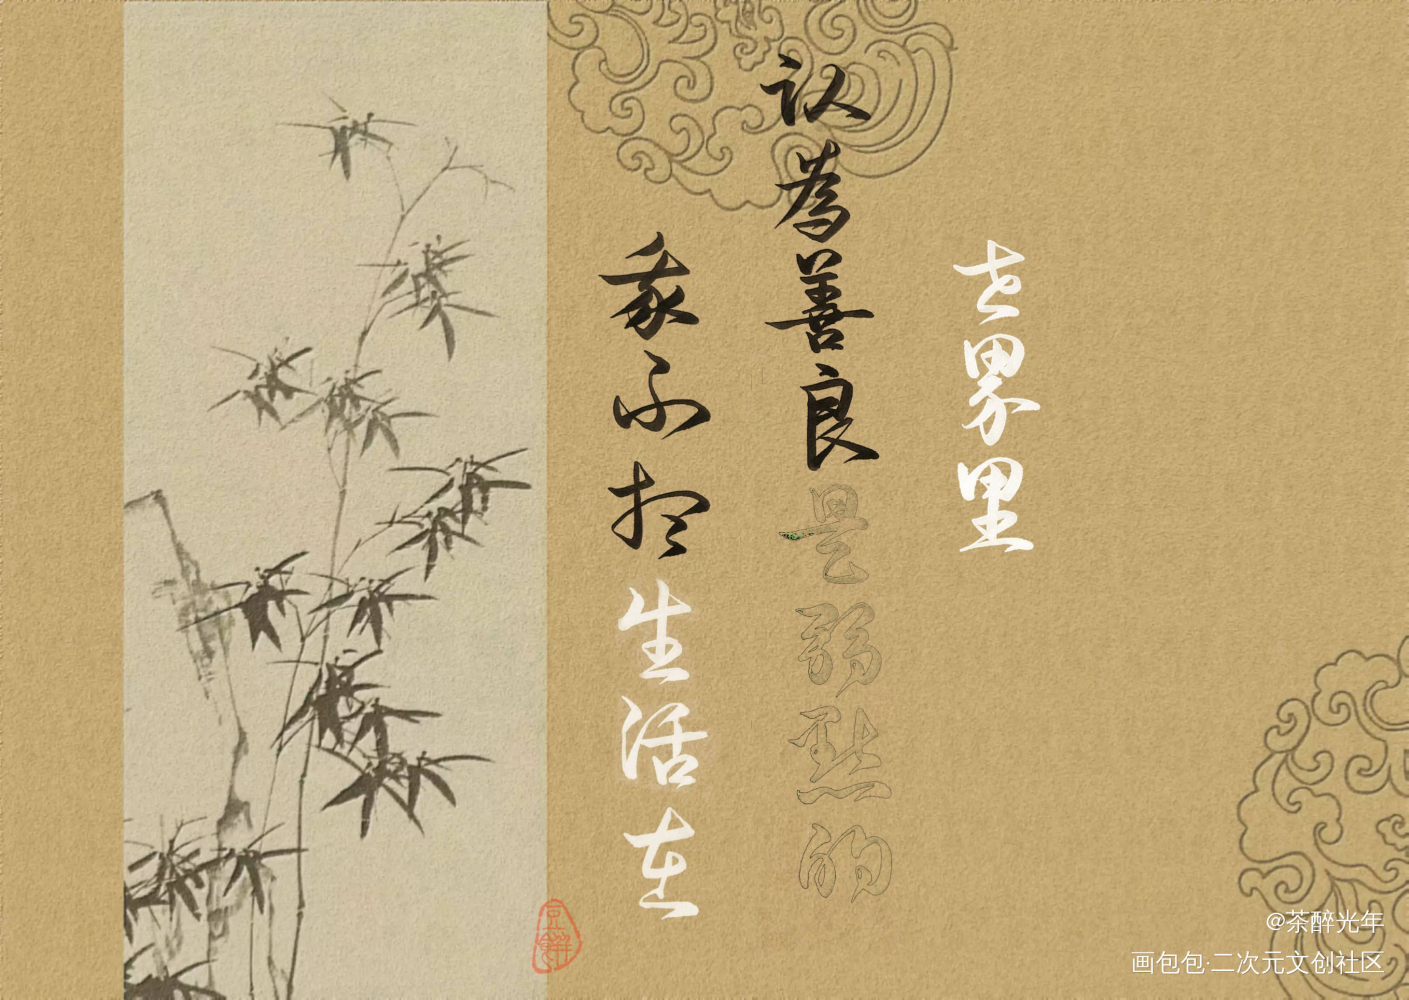 我不想生活在
认為善良是弱點的
世界里
豆餅
@茶醉光年
画包包·二次元文创社区